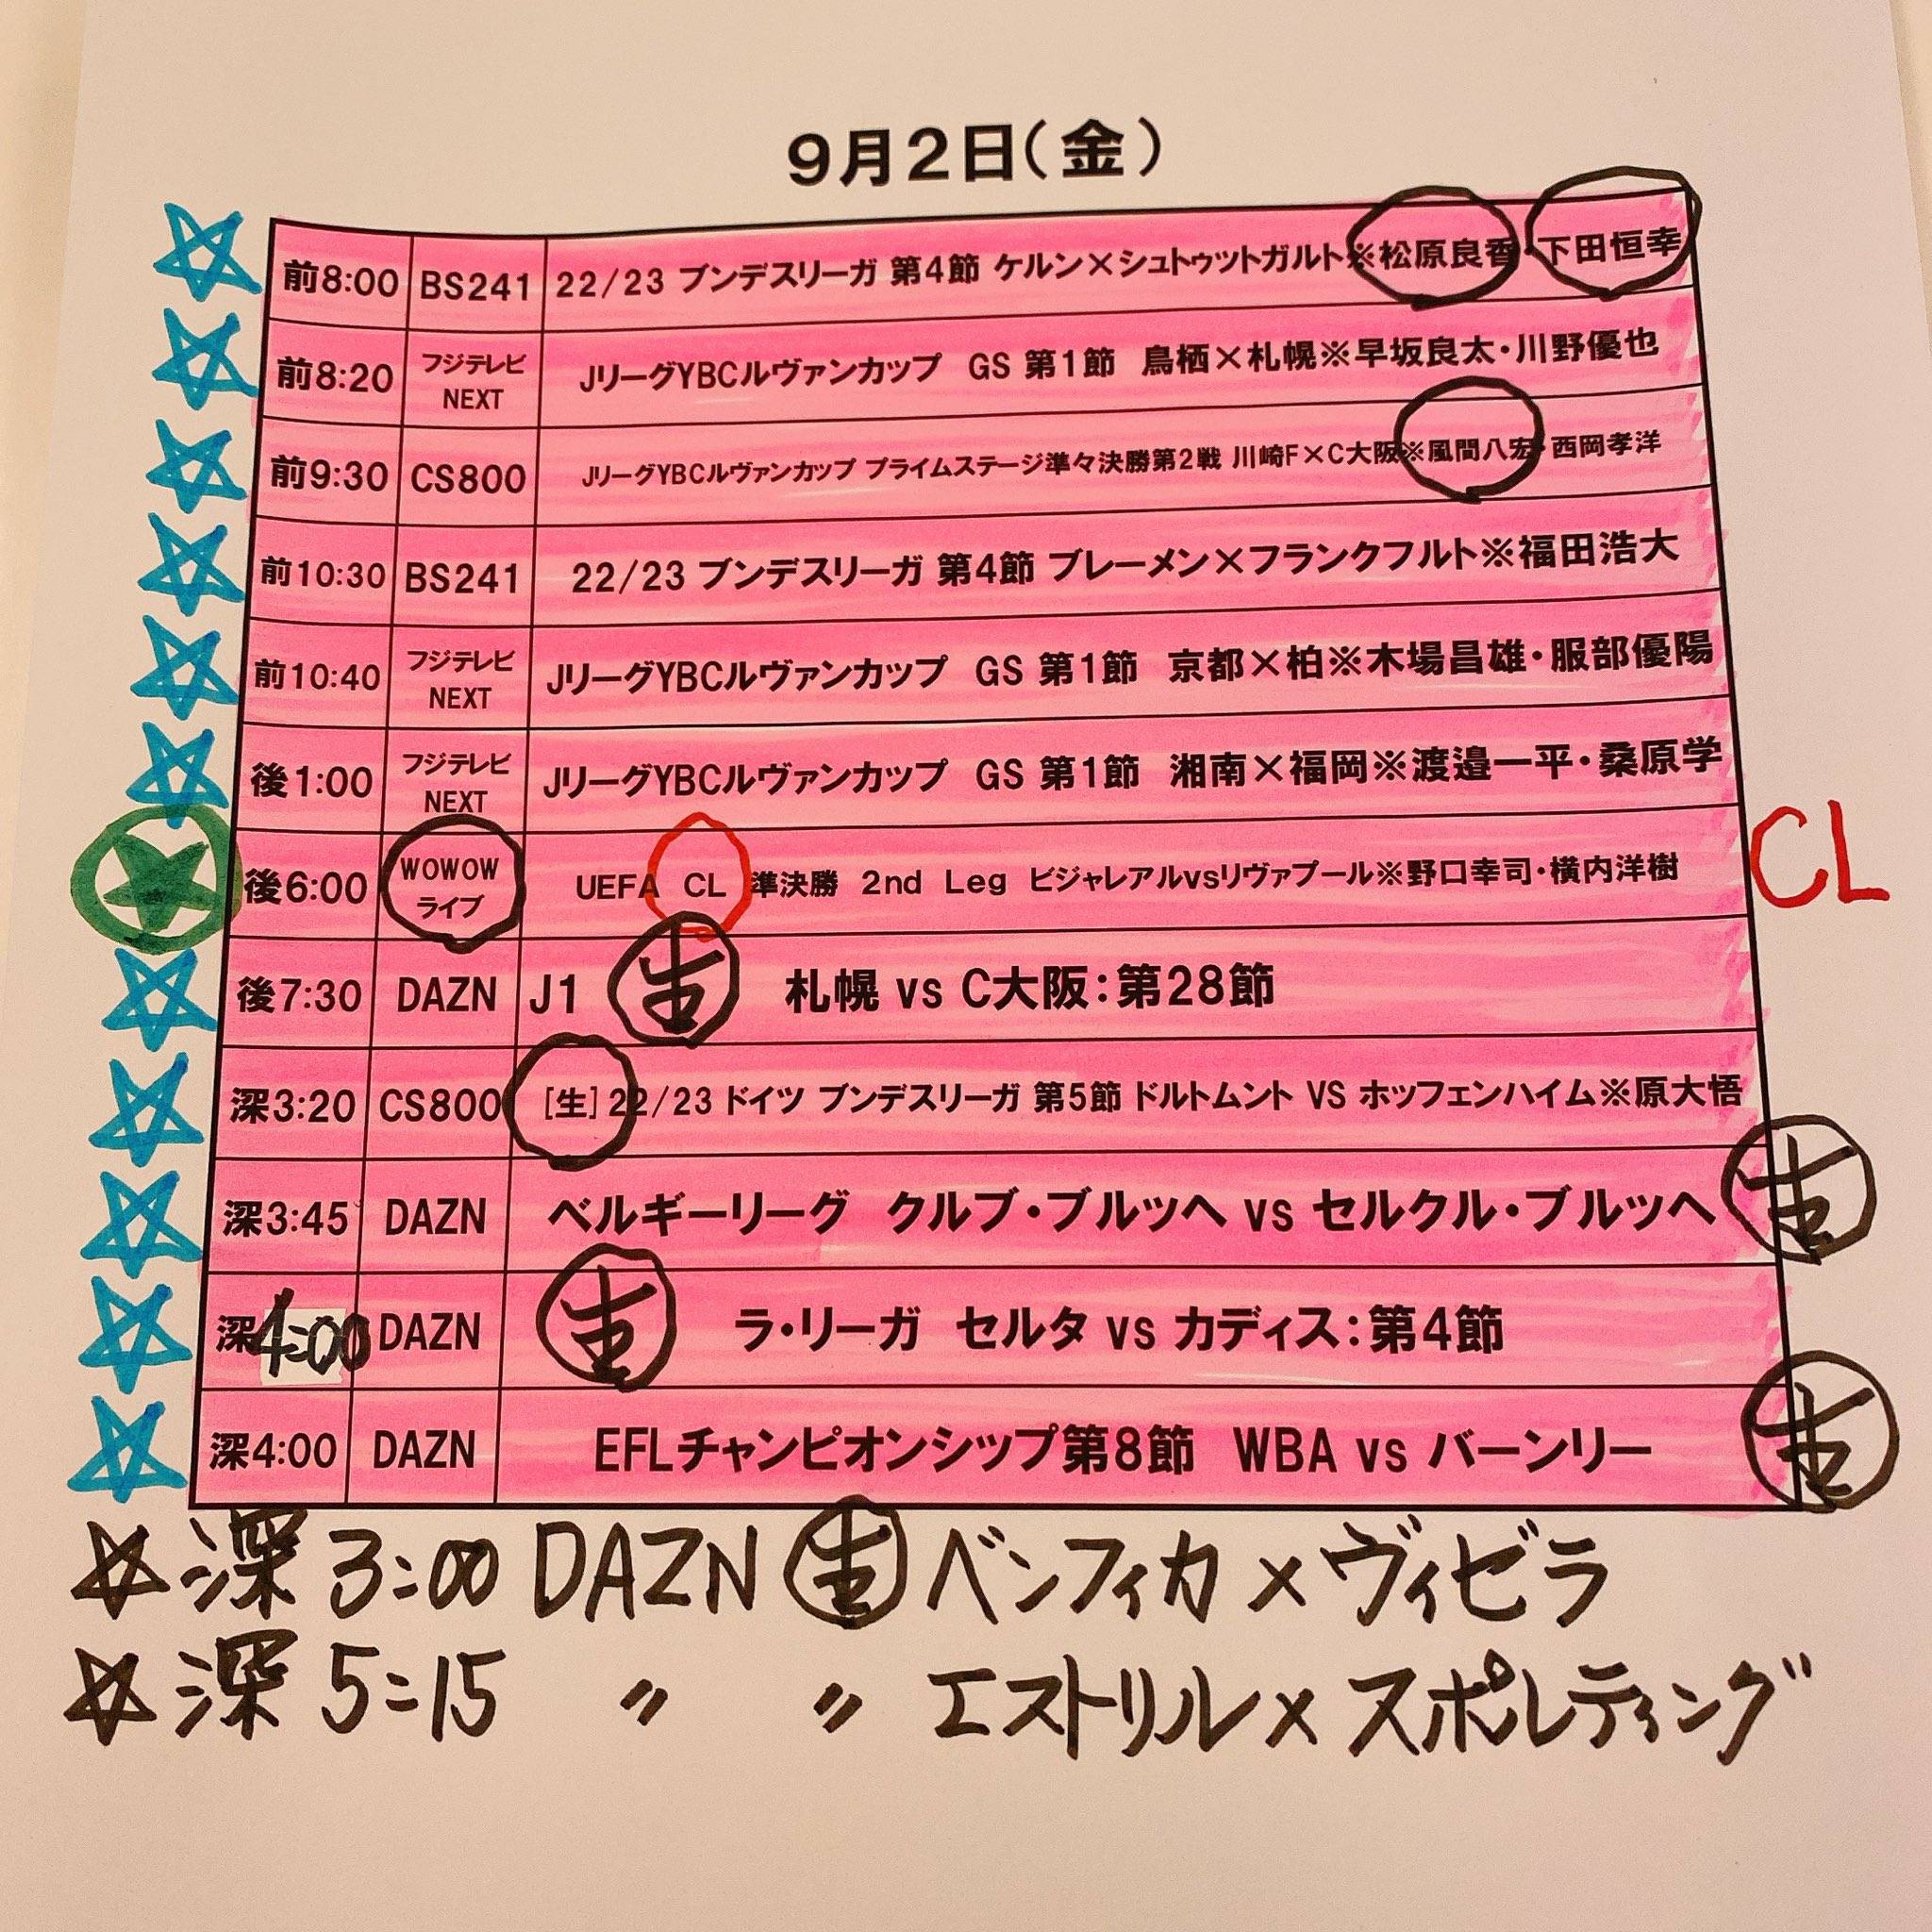 9月2日(金)
前8:00 BS241 22/23 ブンデスリーガ 第4節 ケルン×シュトゥットガルト※松原良香・下田恒幸
前8:20 フジテレビNEXT JリーグYBCルヴァンカップ GS 第1節 鳥栖×札幌※早坂良太・川野優也
前9:30 CS800 JリーグYBCルヴァンカップ プライムステージ準々決勝第2戦 川崎F×C大阪※風間八宏・西岡孝洋
前10:30 BS241 22/23 ブンデスリーガ 第4節 ブレーメン×フランクフルト※福田浩大
前10:40 フジテレビNEXT JリーグYBCルヴァンカップ GS 第1節 京都×柏※木場昌雄・服部優陽
後1:00 フジテレビNEXT JリーグYBCルヴァンカップ GS 第1節 湘南×福岡※渡邉一平・桑原学
後6:00 WOWOWライブ UEFA CL 準決勝 2nd Leg ビジャレアルvsリヴァプール※野口幸司・横内洋樹 CL
後7:30 DAZN J1 生 札幌 vs C大阪:第28節
深3:20 CS800 [生]22/23 ドイツ ブンデスリーガ 第5節 ドルトムント VS ホッフェンハイム※原大悟
深3:45 DAZN ベルギーリーグ クルブ・ブルッヘ vs セルクル・ブルッヘ 生
深4:00 DAZN 生 ラ・リーガ セルタ vs カディス:第4節
深4:00 DAZN EFLチャンピオンシップ第8節 WBA vs バーンリー 生
☆深3:00 DAZN 生 ベンフィカ×ヴィゼラ
☆深5:15 〃 〃 エストリル×スポルティング